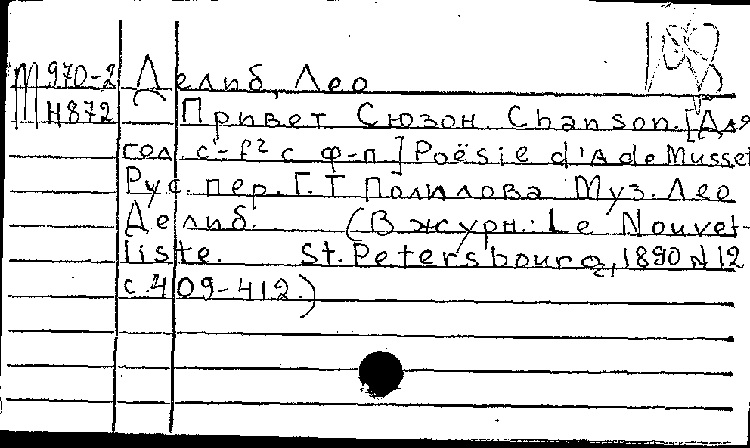 М 970-2 Делиб, Лео
Н872 Привет Сюзон. Chanson. [Для
гол. c'-f² с ф-п.] Poësie d'A de Musset
Рус. пер. Г. Т Полилова Муз. Лео
Делиб. (В журн.: Le Nouvel-
liste. St. Petersbourg, 1890 N 12
с. 409-412.)